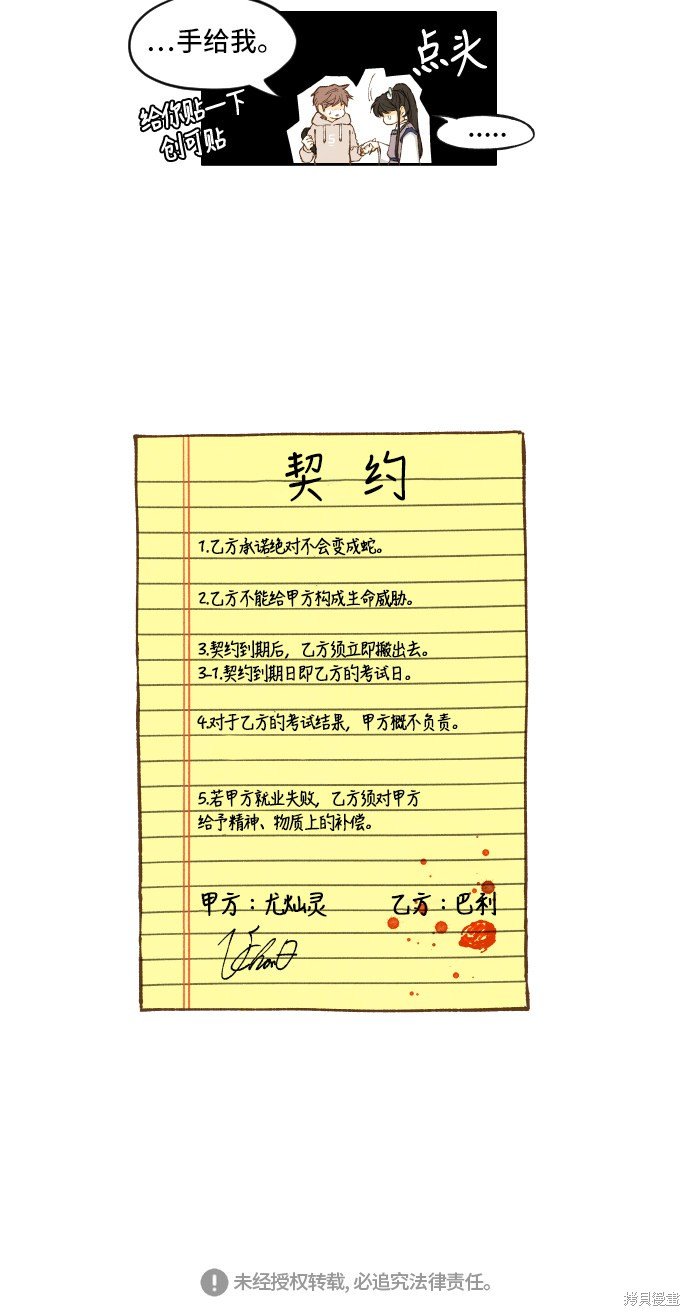 ...手给我。
点头
给你贴一下
创可贴
.....
契约
1.乙方承诺绝对不会变成蛇。
2.乙方不能给甲方构成生命威胁。
3.契约到期后，乙方须立即搬出去。
3-1.契约到期日即乙方的考试日。
4.对于乙方的考试结果，甲方概不负责。
5.若甲方就业失败，乙方须对甲方
给予精神、物质上的补偿。
甲方：尤灿灵
乙方：巴利
未经授权转载，必追究法律责任。
拷貝漫畫